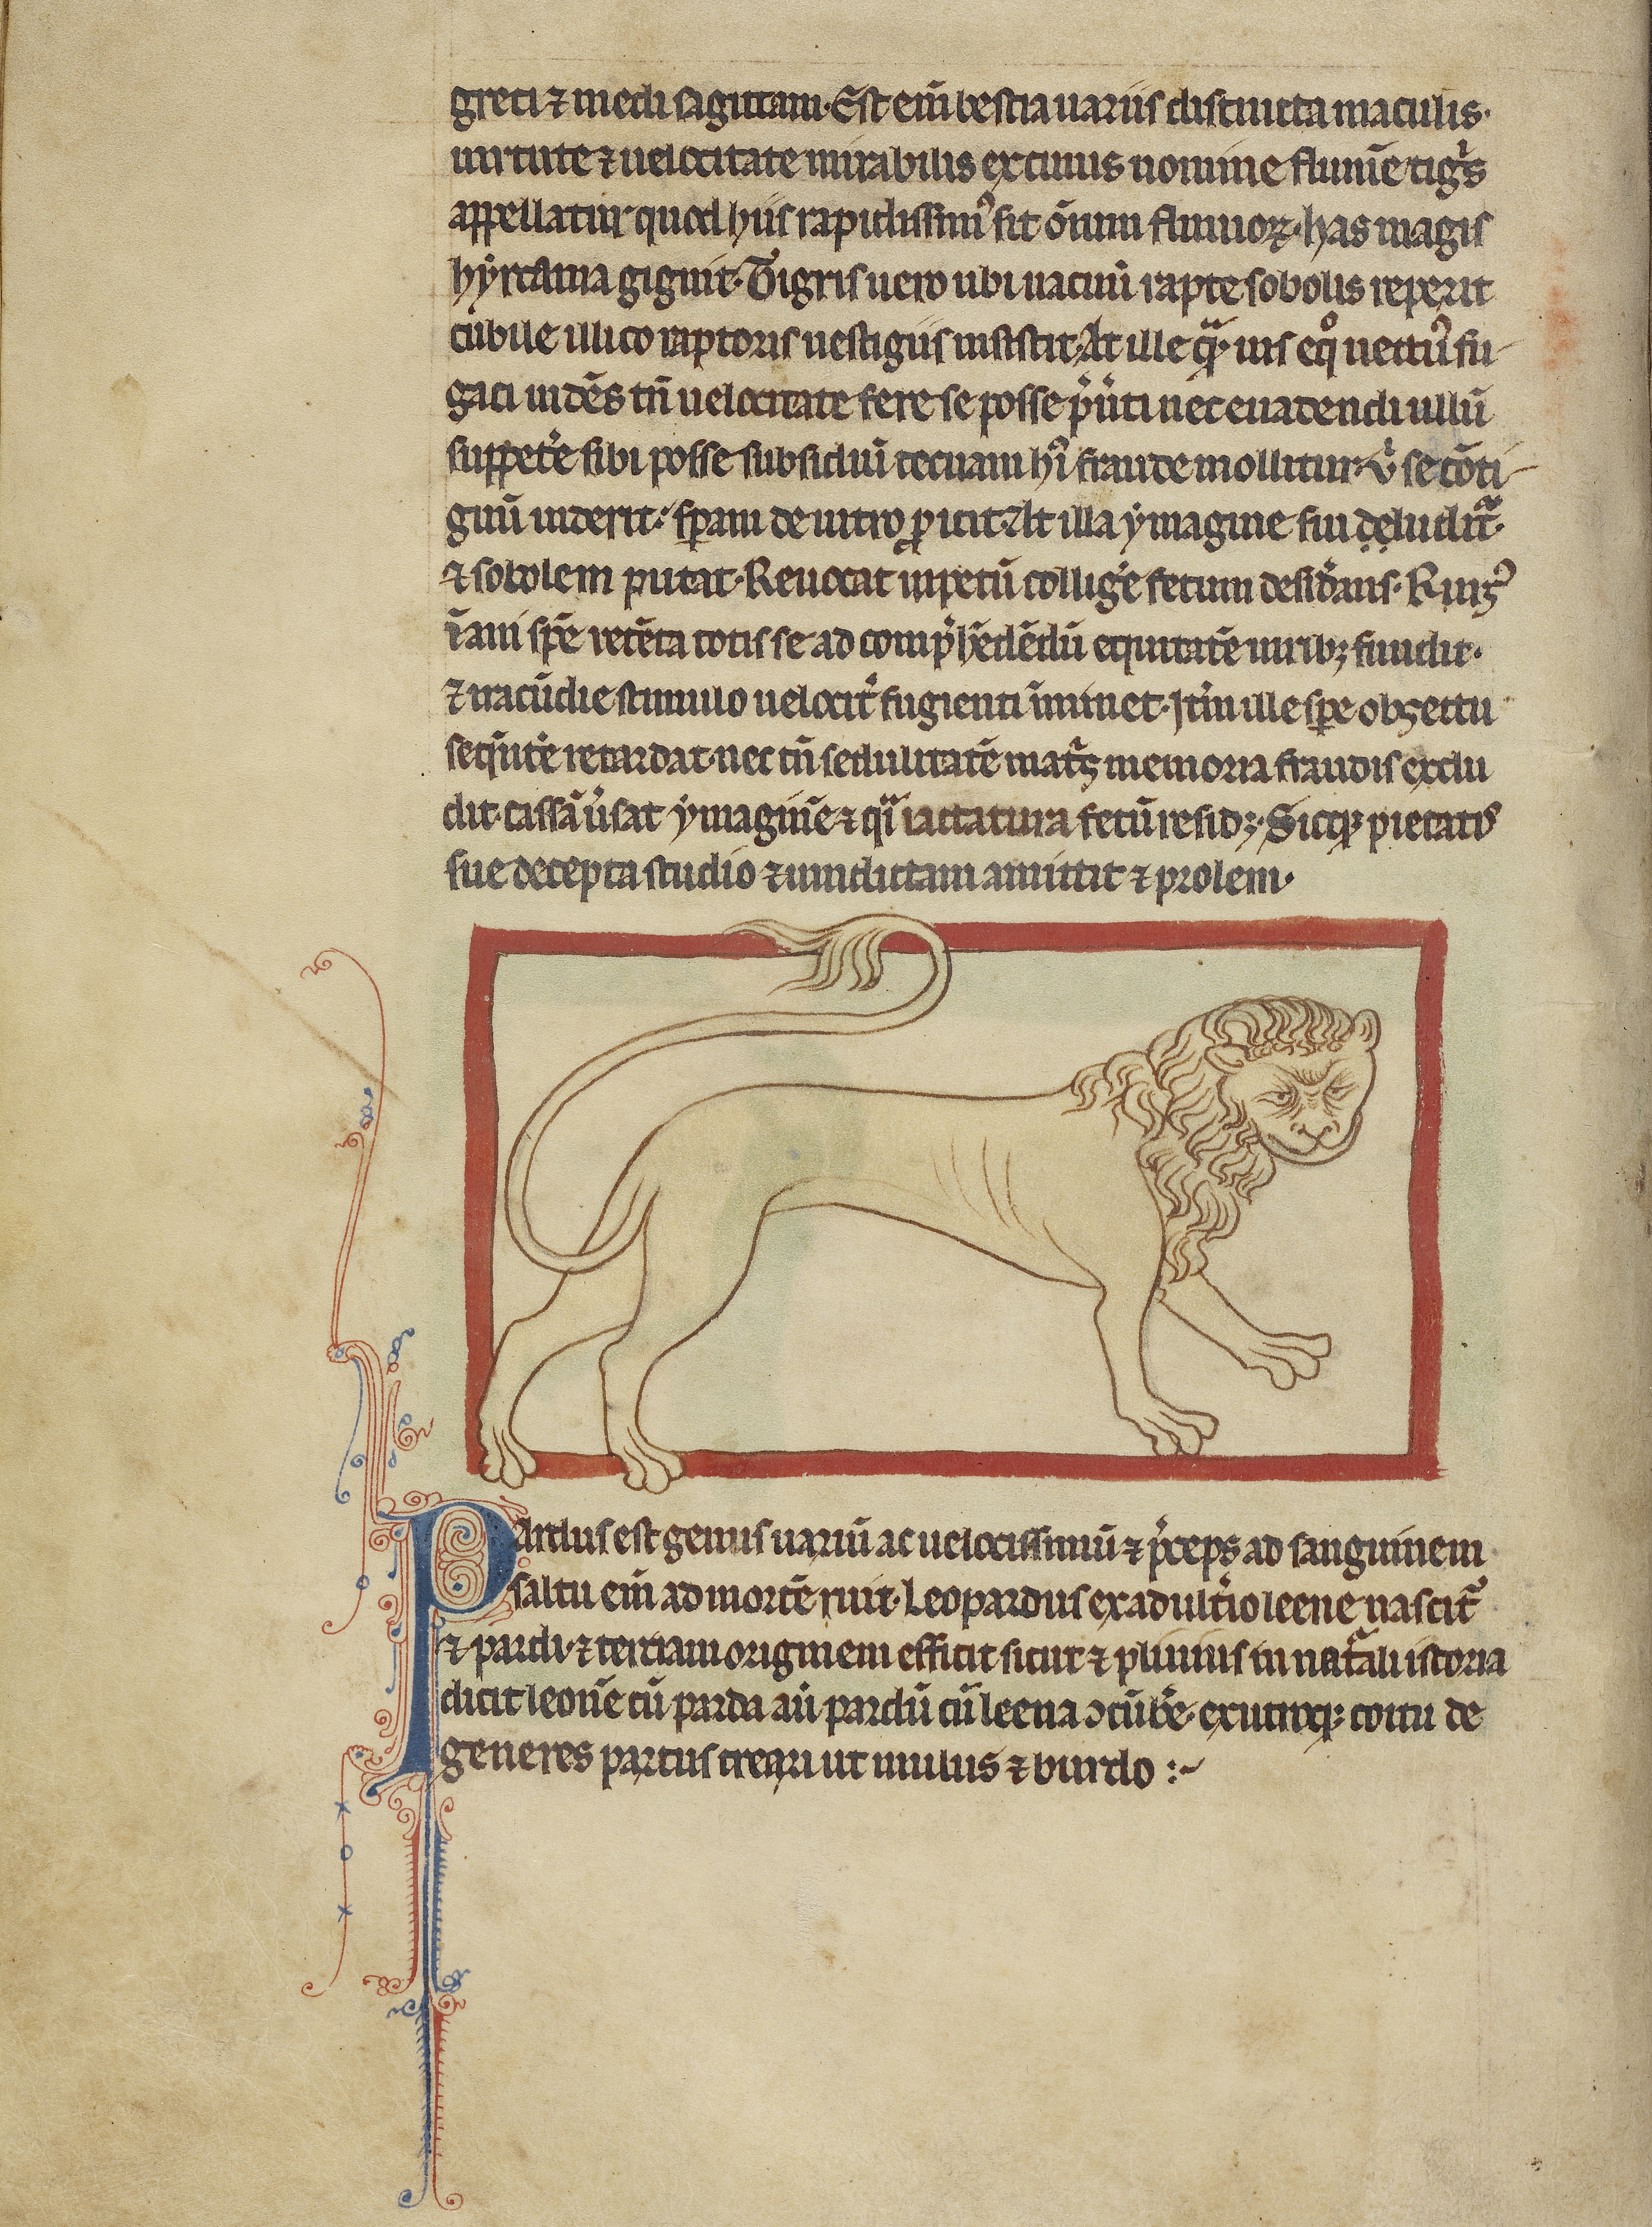 greci ⁊ medi sagittam. Est em̄ bestia uariis distincta maculis.
uirtute ⁊ uelocitate mirabilis ex cuius nomine flum̄e tigͥs
appellatur quod hiis rapidissimꝰ sit om̄nium fluuioꝝ. has magis
hẏrcania gignit. Tigris uero ubi uacuū rapte sobolis reperit
cubile illico raptoris uestigiis insistit. At ille eqͦ uectꝰ fu
gaci uidēs tn̄ uelocitate fere se posse nec euadendi ullū
suppetʼe sibi posse subsidiū tecnam fraude mollitur. vͥ se cōti
guū uiderit. speram de uitro ꝓicit. At illa ẏmagine sui deludit᷑.
⁊ sobolem putat. Reuocat inpetū colligʼe fetum desidʼans. Rursꝰ
īani spē retēta totis se ad comp̄hēdēdū equitatē uiribꝫ fundit.
⁊ iracūdie stimulo uelocitʼ fugienti īminet. Itʼm ille spere obiectu
seqūtē retardat. nec tn̄ sedulitatē matͥs memoria fraudis exclu
dit. cassā uʼsat ẏmaginē ⁊ qͣi lactatura fetū residꝫ. Sicqꝫ pietatis
sue decepta studio ⁊ uindictam amittit ⁊ prolem.
Pardus est genus uariū ac uelocissimū ⁊ pͥceps ad sanguinem
saltu em̄ ad mortē ruit. Leopardus ex adultʼio leene nascit᷑
⁊ pardi. ⁊ tertiam originem efficit sicut ⁊ plinius in natͣali istoria
dicit leonē cū parda aū pardū cū leena ↄcūbʼe. ex utroqꝫ coitu de
generes partus creari ut mulus ⁊ burdo :~